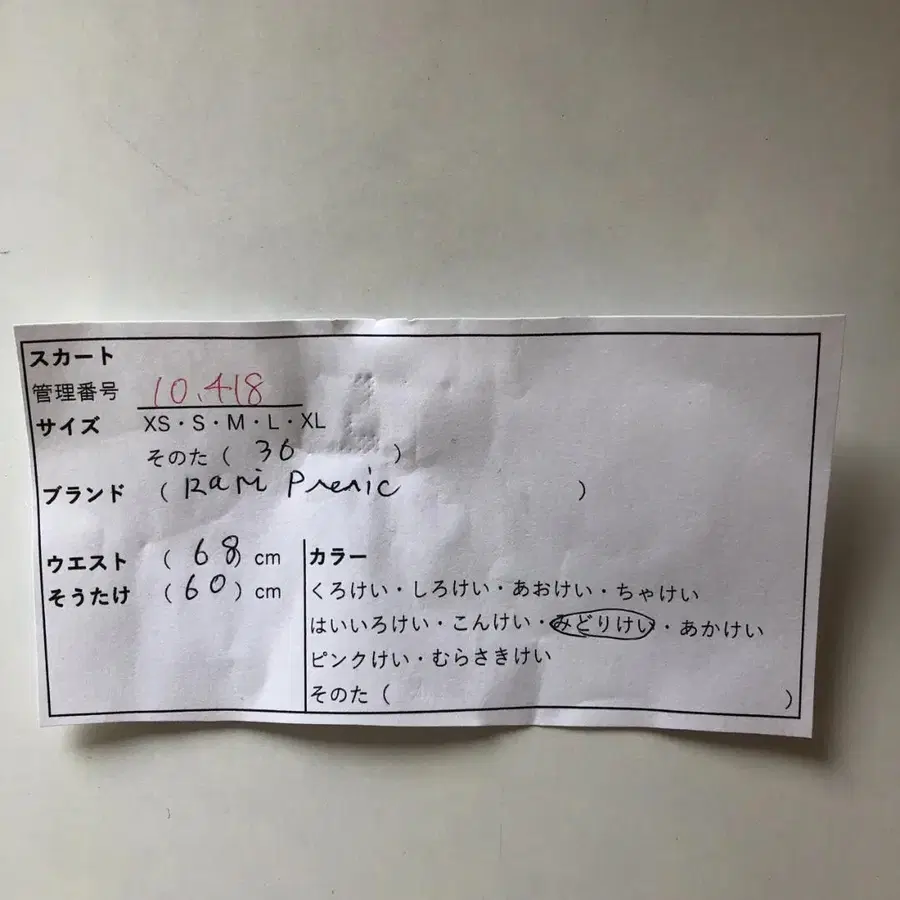 スカート
管理番号 10.418
サイズ XS・S・M・L・XL
そのた ( 36 )
ブランド ( Rani Prenic )
ウエスト ( 68 ) cm
そうたけ ( 60 ) cm
カラー
くろけい・しろけい・あおけい・ちゃけい
はいいろけい・こんけい・みどりけい・あかけい
ピンクけい・むらさきけい
そのた ( )